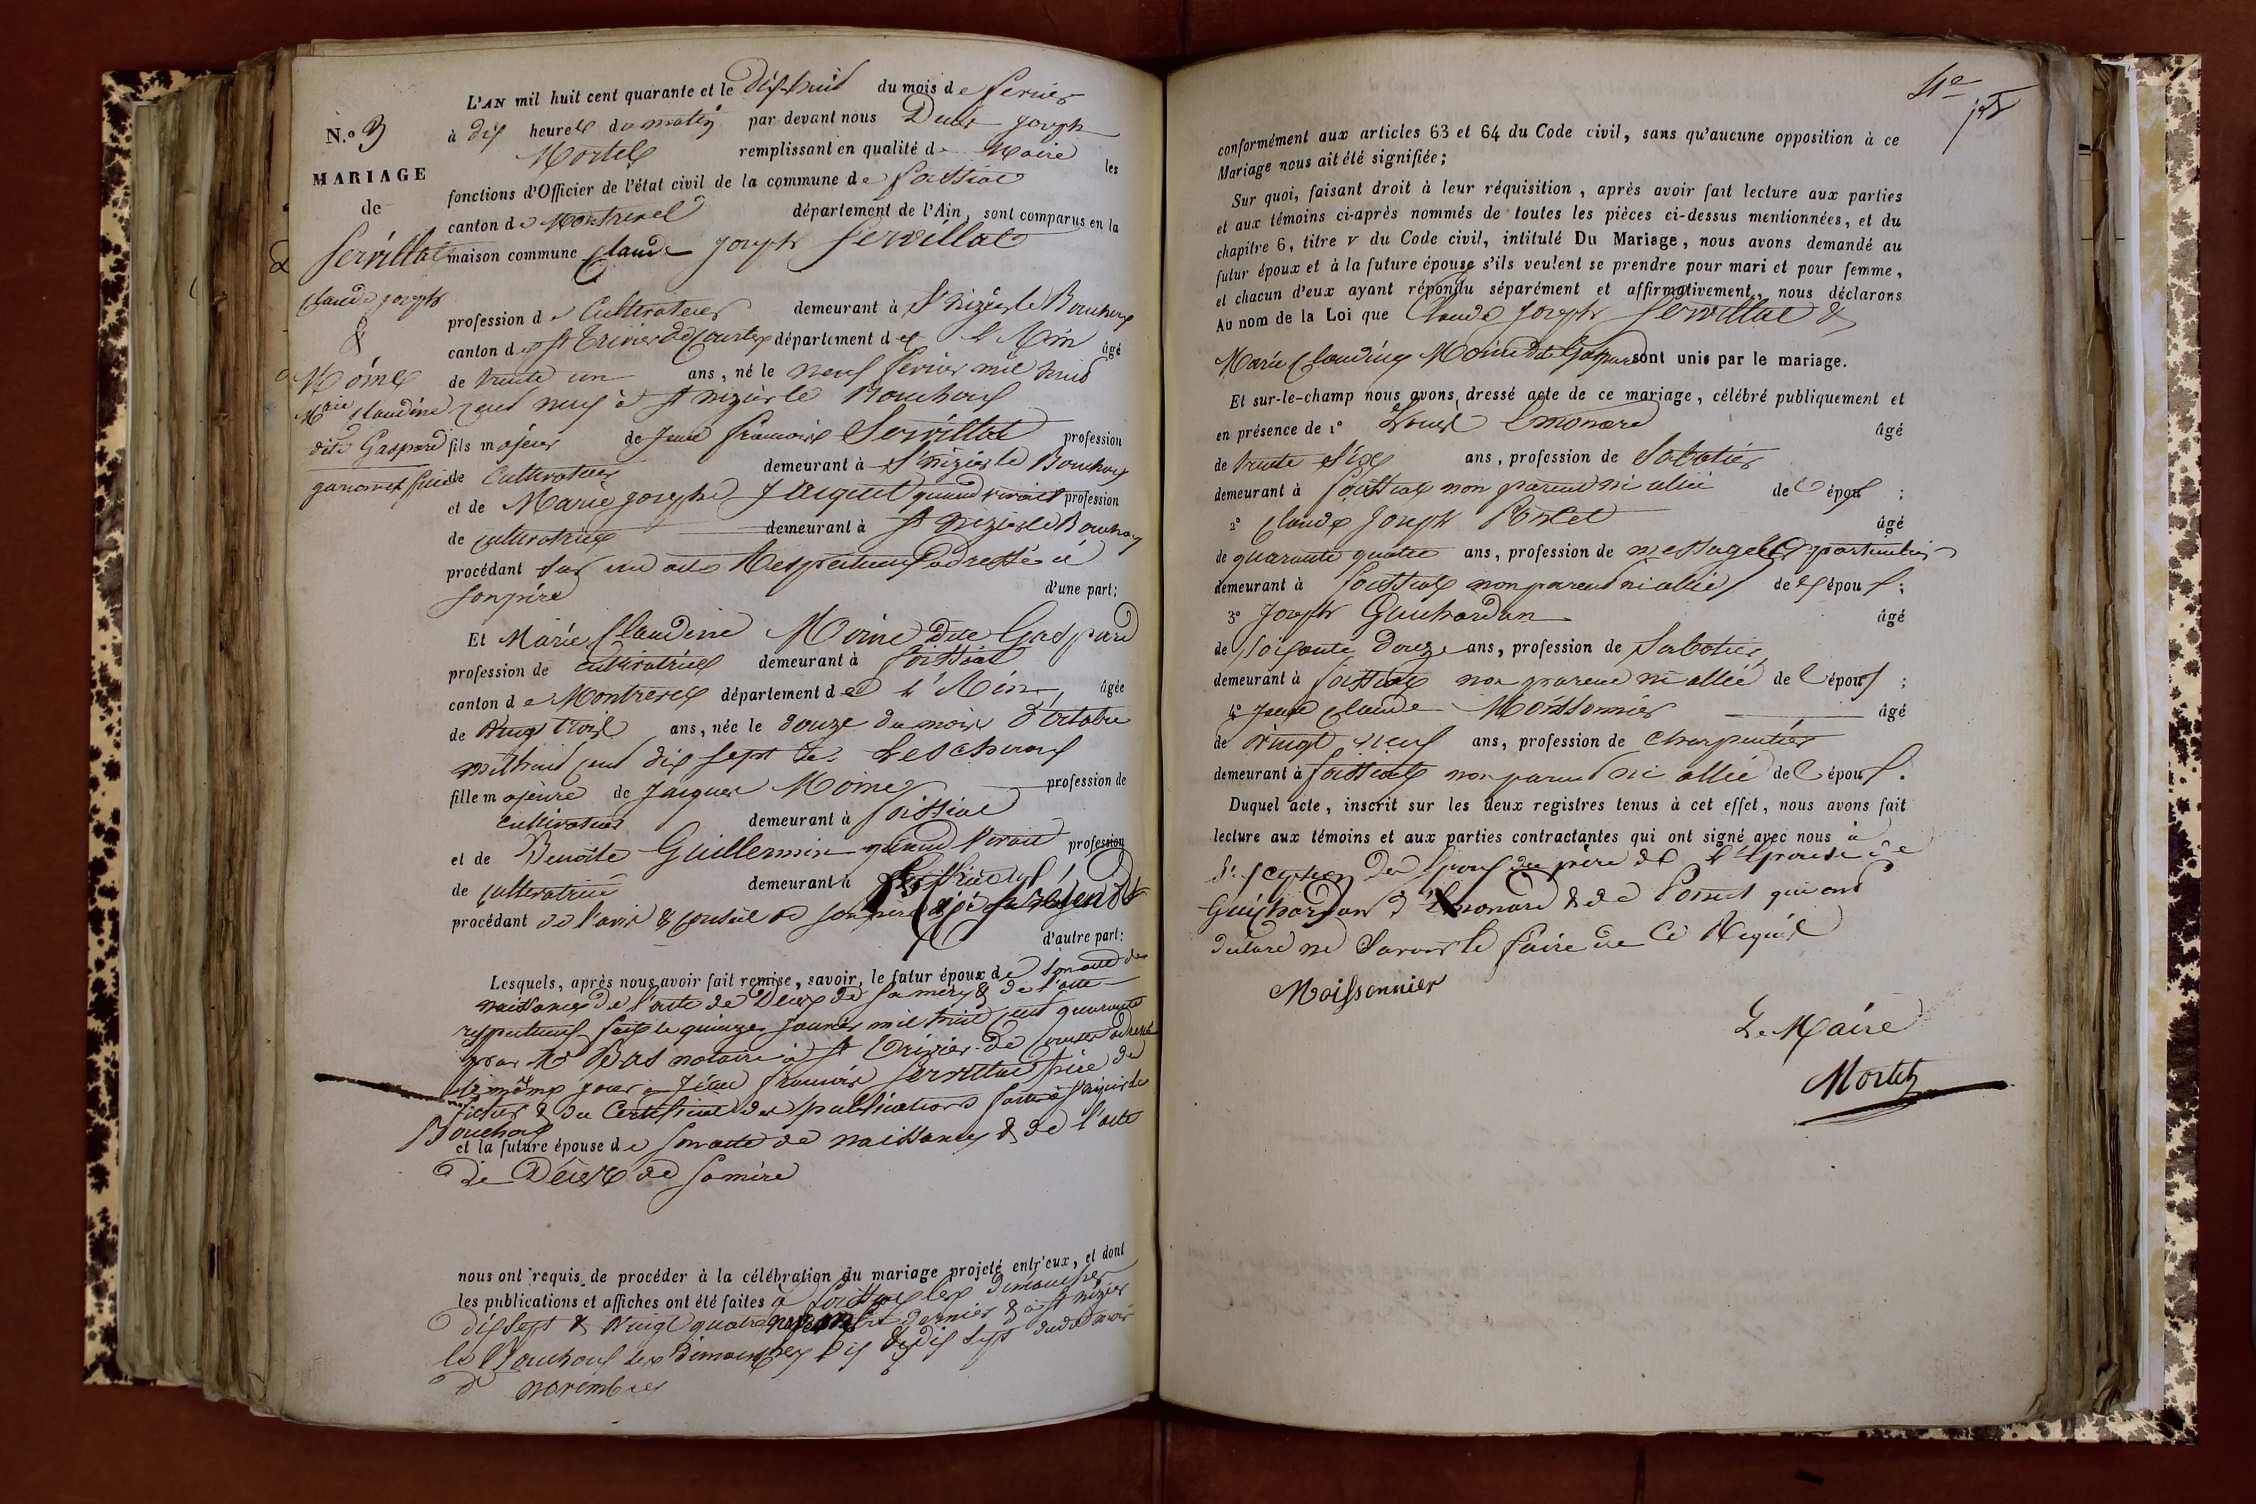 L'AN mil huit cent quarante et le Dix huit du mois de fevrier
N.º 3
à dix heures du matin par devant nous Denis Joseph
Mortel remplissant en qualité de Maire les
MARIAGE
fonctions d'Officier de l'état civil de la commune de foissiat
de
canton de Montrevel département de l'Ain, sont comparus en la
Servillat
maison commune Claude Joseph Servillat
Claude joseph
profession de Cultivateur demeurant à St Nizier le Bouchoux
&
canton de St Trivier de Courtes département de l'Ain âgé
Moine
de trente un ans, né le neuf fevrier mil huit
Marie Claudine
cent neuf à St nizier le Bouchoux
dite Gaspard
fils majeur de Jean françois Servillat profession
de Cultivateur demeurant à St nizier le Bouchoux
et de Marie josephe Jacquet quand vivait profession
de cultivatrice demeurant à St Nizier le Bouchoux
procédant sur un acte Respectueux adressé à
son père d'une part;
Et Marie Claudine Moine dite Gaspard
profession de cultivatrice demeurant à foissiat
canton de Montrevel département de l'Ain, âgée
de vingt trois ans, née le douze du mois d'octobre
mil huit cent dix sept à Lescheroux
fille majeure de Jacques Moine profession de
cultivateur demeurant à foissiat
et de Benoite Guillermin quand vivait profession
de cultivatrice demeurant à
procédant de l'avis & conseil de son père
d'autre part:
Lesquels, après nous avoir fait remise, savoir, le futur époux de son acte de
naissance de l'acte de Décès de sa mère & de l'acte
respectueux fait le quinze janvier mil huit cent quarante
par Me Bas notaire à St Trivier de Courtes adressé
le même jour à Jean françois Servillat père de
& du Certificat des publications faites à St Nizier le
Bouchoux
et la future épouse de son acte de naissance & de l'acte
de Décès de sa mère
nous ont requis de procéder à la célébration du mariage projeté entr'eux, et dont
les publications et affiches ont été faites à foissiat les dimanches
dix sept & vingt quatre novembre dernier & à St Nizier
le Bouchoux les dimanches dix & dix sept dudit mois
de novembre
conformément aux articles 63 et 64 du Code civil, sans qu'aucune opposition à ce
Mariage nous ait été signifiée;
Sur quoi, faisant droit à leur réquisition, après avoir fait lecture aux parties
et aux témoins ci-après nommés de toutes les pièces ci-dessus mentionnées, et du
chapitre 6, titre V du Code civil, intitulé Du Mariage, nous avons demandé au
futur époux et à la future épouse s'ils veulent se prendre pour mari et pour femme,
et chacun d'eux ayant répondu séparément et affirmativement, nous déclarons
Au nom de la Loi que Claude Joseph Servillat &
Marie Claudine Moine dite Gaspard sont unis par le mariage.
Et sur-le-champ nous avons dressé acte de ce mariage, célébré publiquement et
en présence de 1º Louis Emonard âgé
de trente six ans, profession de Sabotier
demeurant à foissiat non parent ni allié de l'époux;
2º Claude Joseph âgé
de quarante quatre ans, profession de messager particulier
demeurant à foissiat non parent ni allié de l'époux;
3º Joseph Guichardan âgé
de Soixante Douze ans, profession de Sabotier
demeurant à foissiat non parent ni allié de l'époux;
4º Jean Claude Moissonnier âgé
de vingt neuf ans, profession de charpentier
demeurant à foissiat non parent ni allié de l'époux.
Duquel acte, inscrit sur les deux registres tenus à cet effet, nous avons fait
lecture aux témoins et aux parties contractantes qui ont signé avec nous à
l'exception des époux du père de l'épouse de
Guichardan d'Emonard & de qui ont
déclaré ne Savoir le faire de ce Requis
Moissonnier
Le Maire
Mortel